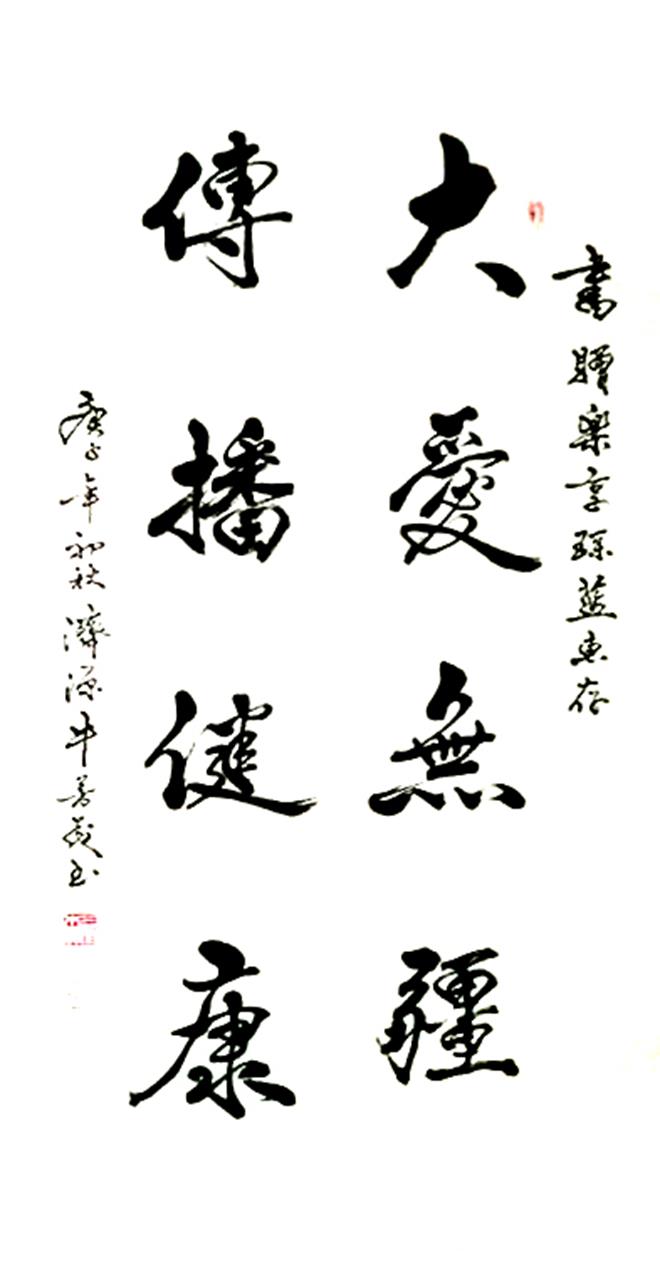 書贈樂享臻藍惠存
大愛無疆
傳播健康
庚子年初秋濟源牛善義书